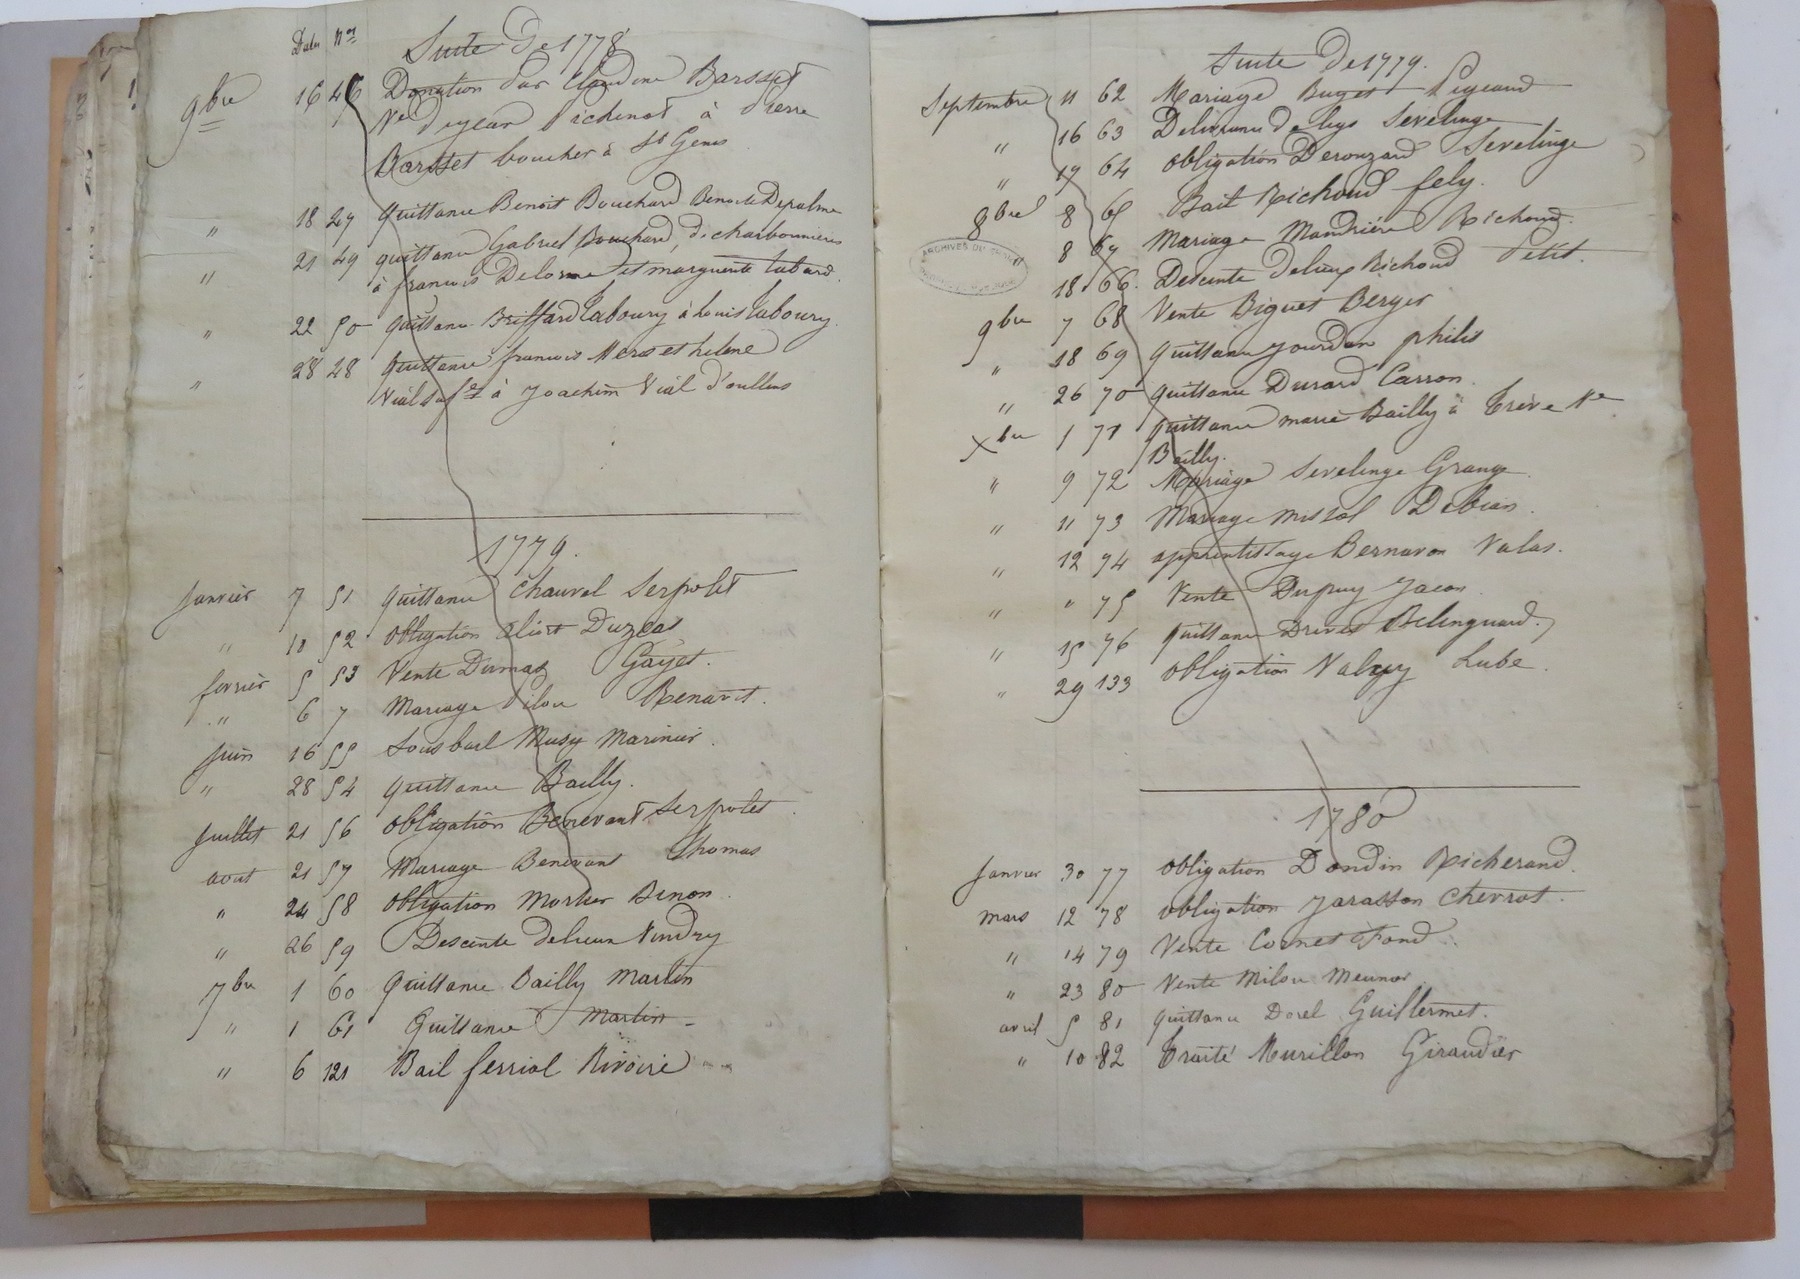 Dates Nos Suite De 1778
9bre 16 46 Donation par Claudine Barsset
Ve Pichenot à Pierre
Barsset boucher à St Genis
" 18 47 quittance Benoit Bouchard Benoite Depalme
" 21 49 quittance Gabriel Bouchard, de charbonnieres
à francois Delorme et marguerite tabard
" 22 50 quittance Briffard Laboury à Louis Laboury
" 28 48 quittance francois et helene
Vial à joachim Vial d'oullins
1779.
Janvier 7 51 quittance Chauvel Serpolet
" 11 52 obligation
fevrier 5 53 Vente Dumas Gayet.
" 6 7 Mariage Renard.
Juin 16 55 Sous bail Musy Marinier.
" 28 54 quittance Bailly.
Juillet 21 56 obligation Benevant Serpolet
aout 21 57 Mariage Benevant Thomas
" 24 58 obligation Mortier Benon.
" 26 59 Descente de lieux Vindry
7bre 1 60 Quittance Bailly Martin
" 1 61 Quittance Martin
" 6 121 Bail ferriol Rivoire
Suite De 1779.
Septembre 11 62 Mariage Buget
" 16 63 Delivrance de legs Sevelinge
" 19 64 obligation Derouzard Sevelinge
8bre 8 65 Bail Richoud fely.
8 67 Mariage Mandrière Richoud.
18. 66. Descente de lieux Richoud Petit.
9bre 7 68 Vente Biguet Berger
" 18 69 quittance Jourdan philis
" 26 70 quittance Durard Carron.
Xbre 1 71 quittance marie Bailly à Trève Ve
Bailly.
" 9 72 Mariage Sevelinge Grange.
" 11 73 Mariage Debian.
" 12 74 apprentissage Bernavon Valas.
" " 75 Vente Dupuy Jacon
" 15 76 quittance Drevet Belinguard.
" 29 133 obligation Lube.
1780
Janvier 30 77 obligation Dondin Richerand.
mars 12 78 obligation jarasson Chevrot.
" 14 79 Vente Cornet Fond.
" 23 80 Vente Milou Meunier
avril 5 81 quittance Dorel Guillermet.
" 10 82 Traité Murillon Giraudier